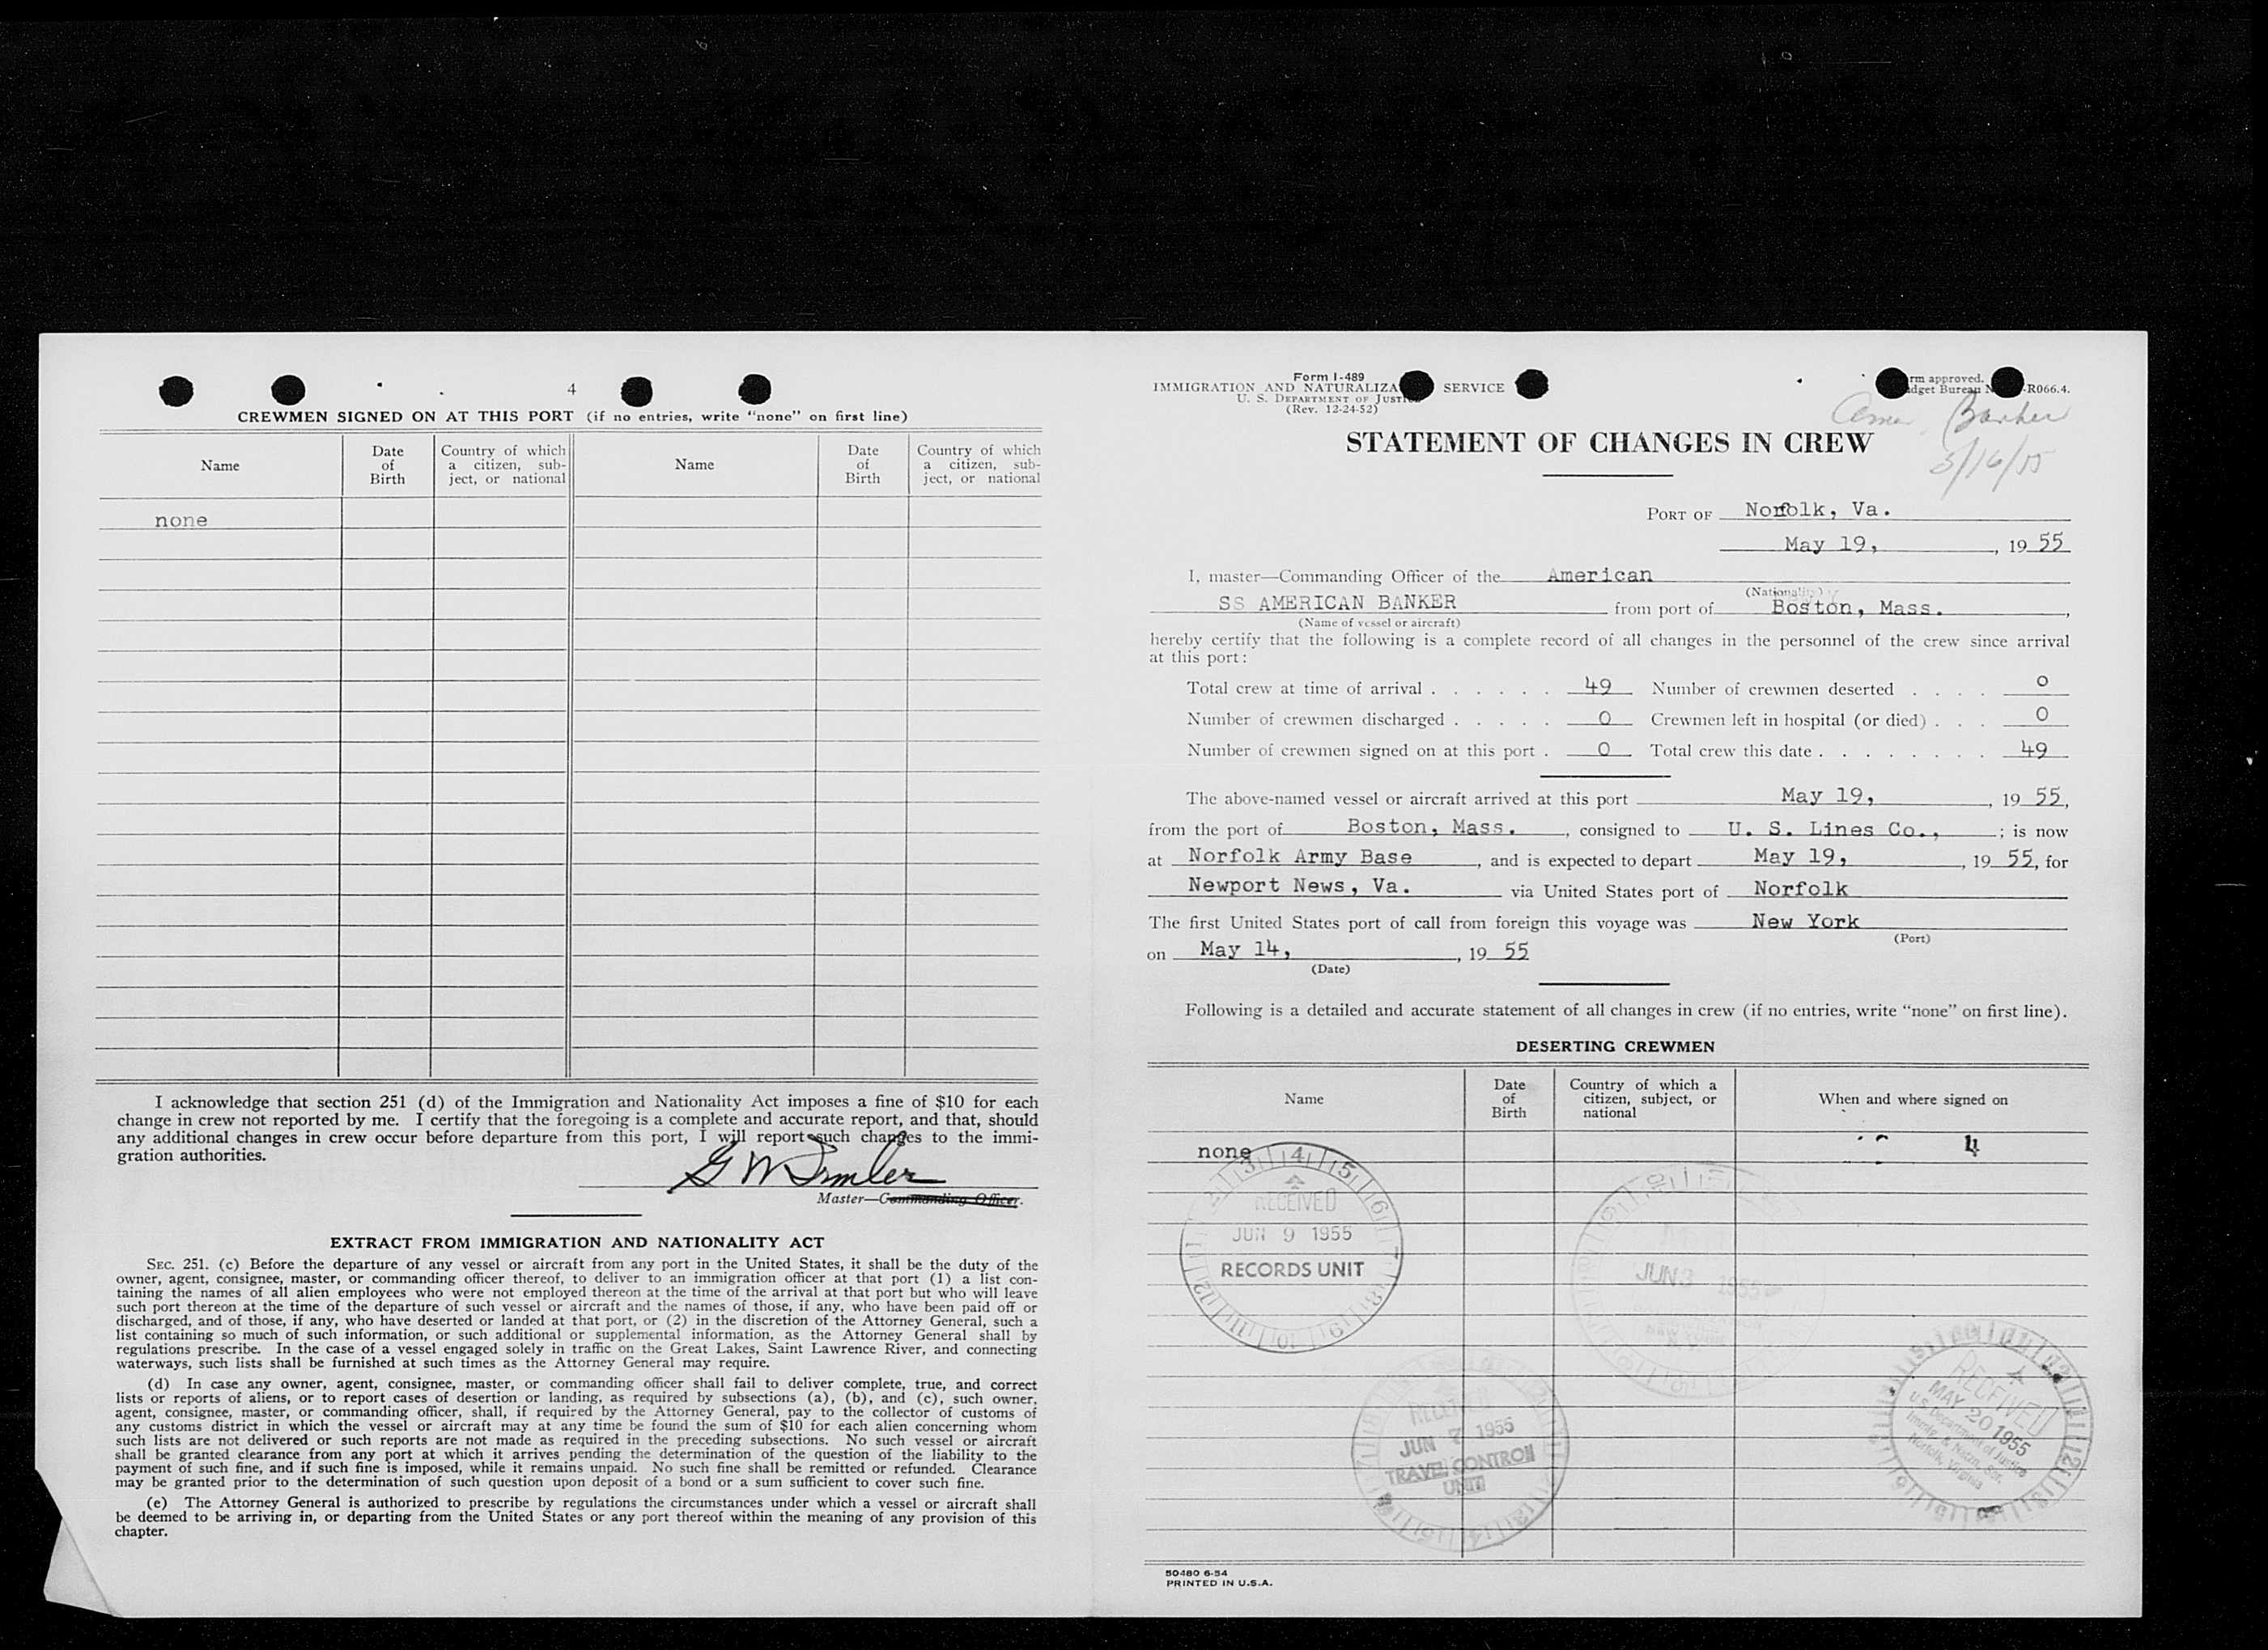 4
CREWMEN SIGNED ON AT THIS PORT (if no entries, write "none" on first line)
Name
Date of Birth
Country of which a citizen, sub-ject, or national
Name
Date of Birth
Country of which a citizen, sub-ject, or national
none
I acknowledge that section 251 (d) of the Immigration and Nationality Act imposes a fine of $10 for each
change in crew not reported by me. I certify that the foregoing is a complete and accurate report, and that, should
any additional changes in crew occur before departure from this port, I will report such changes to the immi-
gration authorities.
Master—Commanding Officer.
EXTRACT FROM IMMIGRATION AND NATIONALITY ACT
SEC. 251. (c) Before the departure of any vessel or aircraft from any port in the United States, it shall be the duty of the
owner, agent, consignee, master, or commanding officer thereof, to deliver to an immigration officer at that port (1) a list con-
taining the names of all alien employees who were not employed thereon at the time of the arrival at that port but who will leave
such port thereon at the time of the departure of such vessel or aircraft and the names of those, if any, who have been paid off or
discharged, and of those, if any, who have deserted or landed at that port, or (2) in the discretion of the Attorney General, such a
list containing so much of such information, or such additional or supplemental information, as the Attorney General shall by
regulations prescribe. In the case of a vessel engaged solely in traffic on the Great Lakes, Saint Lawrence River, and connecting
waterways, such lists shall be furnished at such times as the Attorney General may require.
(d) In case any owner, agent, consignee, master, or commanding officer shall fail to deliver complete, true, and correct
lists or reports of aliens, or to report cases of desertion or landing, as required by subsections (a), (b), and (c), such owner,
agent, consignee, master, or commanding officer, shall, if required by the Attorney General, pay to the collector of customs of
any customs district in which the vessel or aircraft may at any time be found the sum of $10 for each alien concerning whom
such lists are not delivered or such reports are not made as required in the preceding subsections. No such vessel or aircraft
shall be granted clearance from any port at which it arrives pending the determination of the question of the liability to the
payment of such fine, and if such fine is imposed, while it remains unpaid. No such fine shall be remitted or refunded. Clearance
may be granted prior to the determination of such question upon deposit of a bond or a sum sufficient to cover such fine.
(e) The Attorney General is authorized to prescribe by regulations the circumstances under which a vessel or aircraft shall
be deemed to be arriving in, or departing from the United States or any port thereof within the meaning of any provision of this
chapter.
Form I-489
IMMIGRATION AND NATURALIZA SERVICE
U. S. DEPARTMENT OF JUSTI
(Rev. 12-24-52)
rm approved.
dget Bureau N -R066.4.
Amer. Banker
5/16/55
STATEMENT OF CHANGES IN CREW
PORT OF Norfolk, Va.
May 19, , 19 55
I, master—Commanding Officer of the American
(Nationality)
SS AMERICAN BANKER from port of Boston, Mass. ,
(Name of vessel or aircraft)
hereby certify that the following is a complete record of all changes in the personnel of the crew since arrival
at this port:
Total crew at time of arrival . . . . . . 49 Number of crewmen deserted . . . . 0
Number of crewmen discharged . . . . . 0 Crewmen left in hospital (or died) . . . 0
Number of crewmen signed on at this port . 0 Total crew this date . . . . . . . . 49
The above-named vessel or aircraft arrived at this port May 19, , 19 55,
from the port of Boston, Mass. , consigned to U. S. Lines Co., ; is now
at Norfolk Army Base , and is expected to depart May 19, , 19 55, for
Newport News, Va. via United States port of Norfolk
The first United States port of call from foreign this voyage was New York
(Port)
on May 14, , 19 55
(Date)
Following is a detailed and accurate statement of all changes in crew (if no entries, write "none" on first line).
DESERTING CREWMEN
Name
Date of Birth
Country of which a citizen, subject, or national
When and where signed on
none
4
RECEIVED
JUN 9 1955
RECORDS UNIT
JUN 3 1955
RECEIVED
JUN 7 1955
TRAVEL CONTROL
UNIT
RECEIVED
MAY 20 1955
U.S. Department of Justice
Immig. & Natzn. Ser.
Norfolk, Virginia
50480 6-54
PRINTED IN U.S.A.